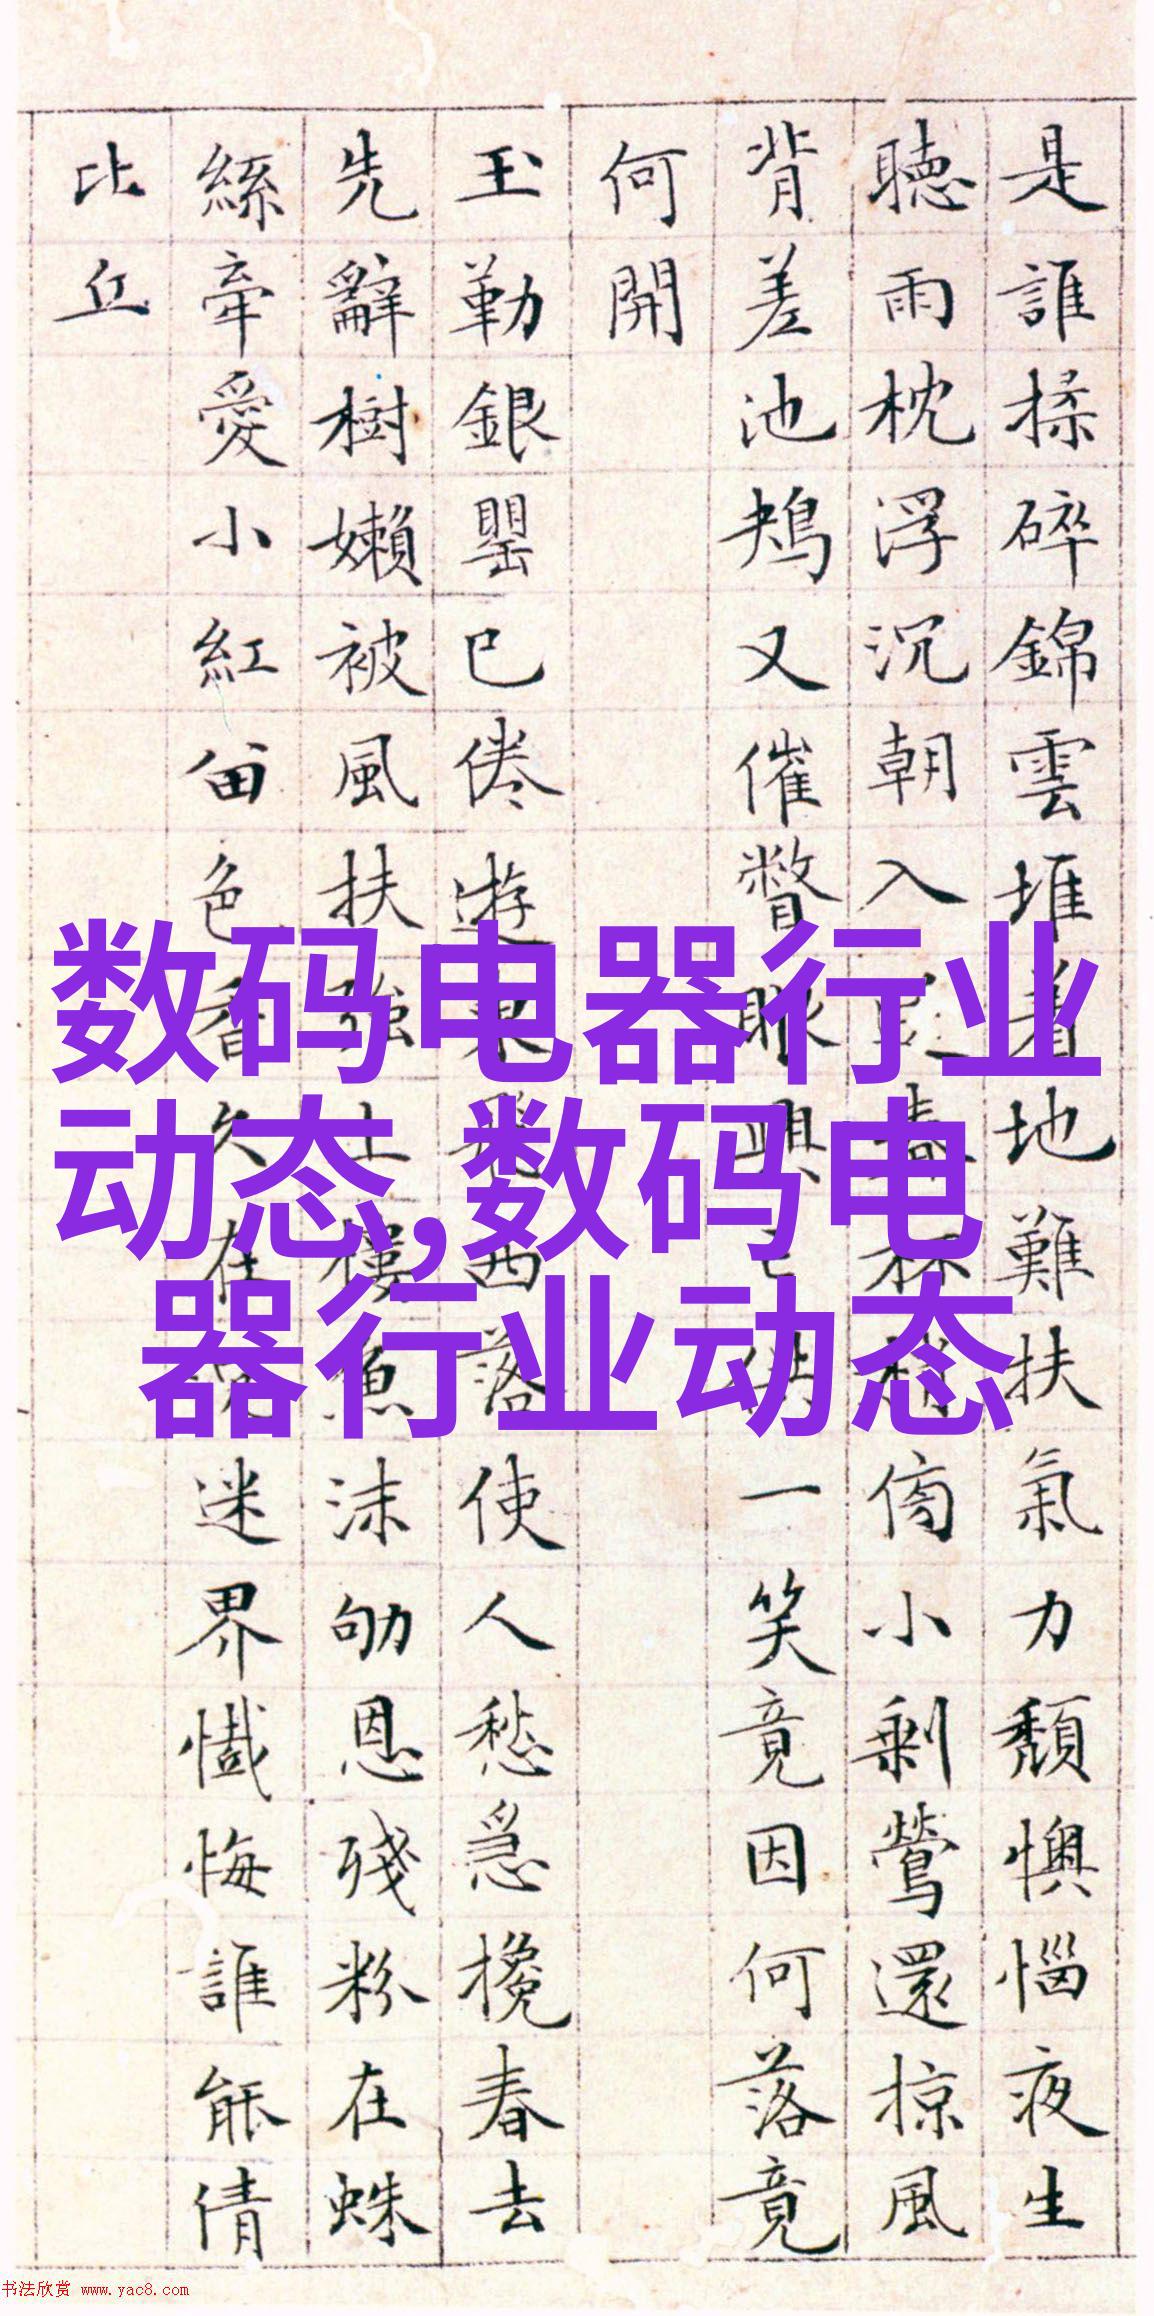 是誰揉碎錦雲堆着地難扶氣力頹懊惱夜生
聴雨枕浮沉朝入小剩鶯還掠風
背差池鳺又催瞥眼興亡供一笑竟因何落竟
何開
玉勒銀罌已倦遊東飛西落使人愁急攙春去
先辭樹嬾被風扶強上樓魚沫劬恩殘粉在蛛
絲牽愛小紅畄色香久在迷界懺悔誰能倩
比丘
数码电器行业
动态,数码电
器行业动态
书法欣赏 www.yac8.com